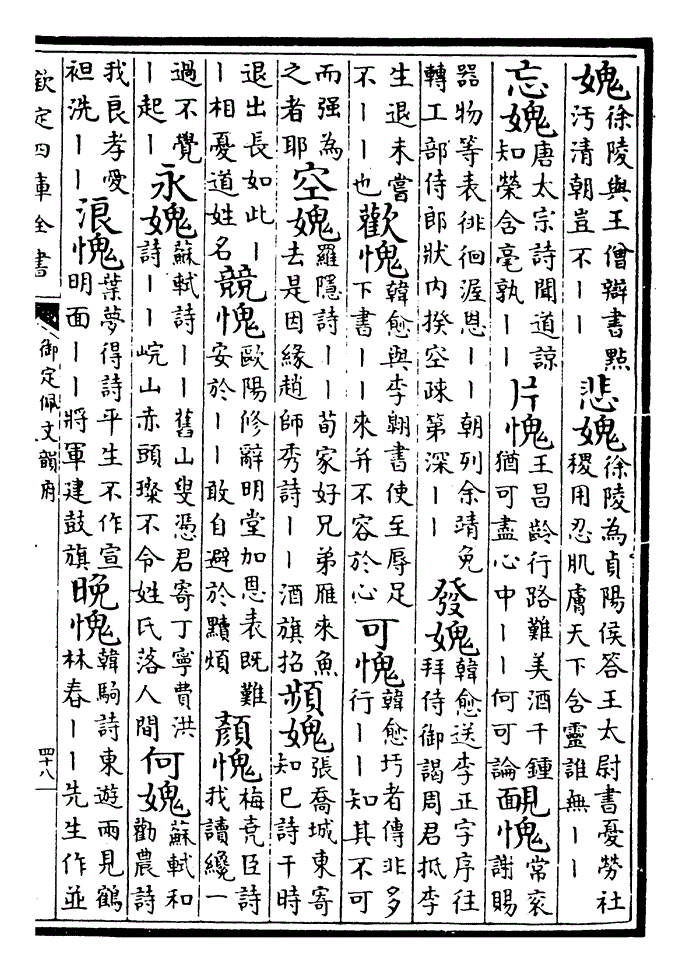 媿徐陵與王僧辯書點汚清朝豈不丨丨悲媿徐陵為貞陽侯答王太尉書憂勞社稷用忍肌膚天下含靈誰無丨丨
忘媿唐太宗詩聞道諒知榮含毫孰丨丨片愧王昌齡行路難美酒千鍾猶可盡心中丨丨何可論靦愧常衮謝賜
器物等表徘徊渥恩丨丨朝列余靖免轉工部侍郎狀内揆空疎第深丨丨發媿韓愈送李正字序往拜侍御謁周君抵李
生退未嘗不丨丨也歡愧韓愈與李翺書使至辱足下書丨丨來并不容於心可愧韓愈圬者傳非多行丨丨知其不可
而强為之者耶空媿羅隱詩丨丨荀家好兄弟雁來魚去是因緣趙師秀詩丨丨酒旗招頻媿張喬城東寄知已詩干時
退出長如此丨丨相憂道姓名競愧歐陽修辭明堂加恩表既難安於丨丨敢自避於黷煩顏愧梅堯臣詩我讀纔一
過不覺丨起丨永媿蘇軾詩丨丨舊山叟憑君寄丁寧費洪詩丨丨峴山赤頭璨不令姓氏落人間何媿蘇軾和勸農詩
我良孝愛袒洗丨丨浪愧葉夢得詩平生不作宣明面丨丨將軍建鼓旗晚愧韓駒詩東遊兩見鶴林春丨丨先生作並
欽定四庫全書
御定佩文韻府
四十八